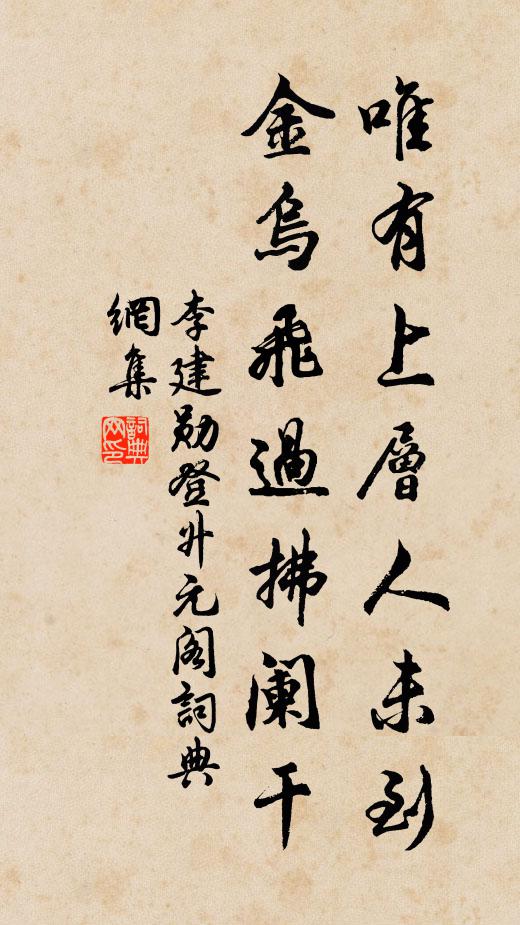 唯有上層人未到
金烏飛過拂闌干
李建勛登升元阁詞典
網集
詞典
网印